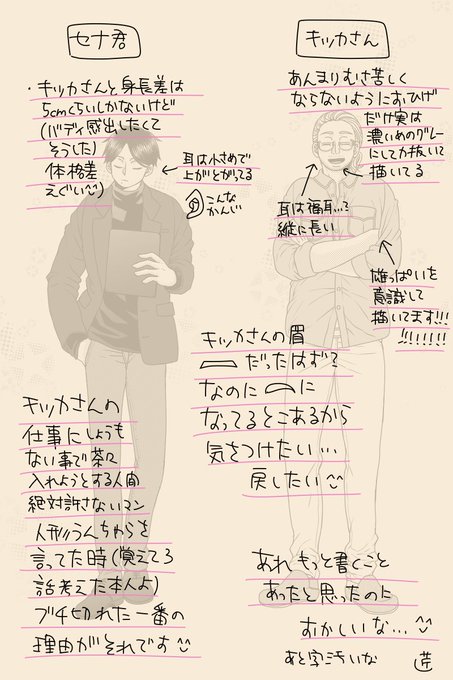 セナ君
・キッカさんと身長差は
5cmくらいしかないけど
(バディ感出したくて
そうした)
体格差
えぐい
耳は小さめで
上がとがってる
こんな
かんじ
キッカさんの
仕事にしょうも
ない事で茶々
入れようとする人間
絶対許さないマン
人形うんちゃらを
言ってた時(覚えてろ
話考えた本人よ)
ブチ切れた一番の
理由がそれです
キッカさん
あんまりむさ苦しく
ならないようにおひげ
だけ実は
濃いめのグレー
にして力抜いて
描いてる
耳は福耳…?
縦に長い
雄っぱいを
意識して
描いてます!!!
!!!!!!!
キッカさんの眉
だったはず?
なのに に
なってるとこあるから
気をつけたい…
戻したい
あれ もっと書くこと
あったと思ったのに
おかしいな…
あと字汚いな